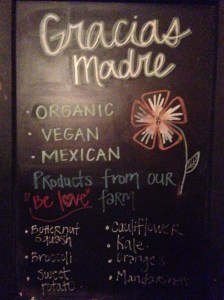 Gracias
Madre
· ORGANIC
· VEGAN
· MEXICAN
Products from our
"Be love" farm
· Butternut
squash
· Broccoli
· Sweet
potato
· Cauliflower
· Kale
· Oranges
· Mandarins